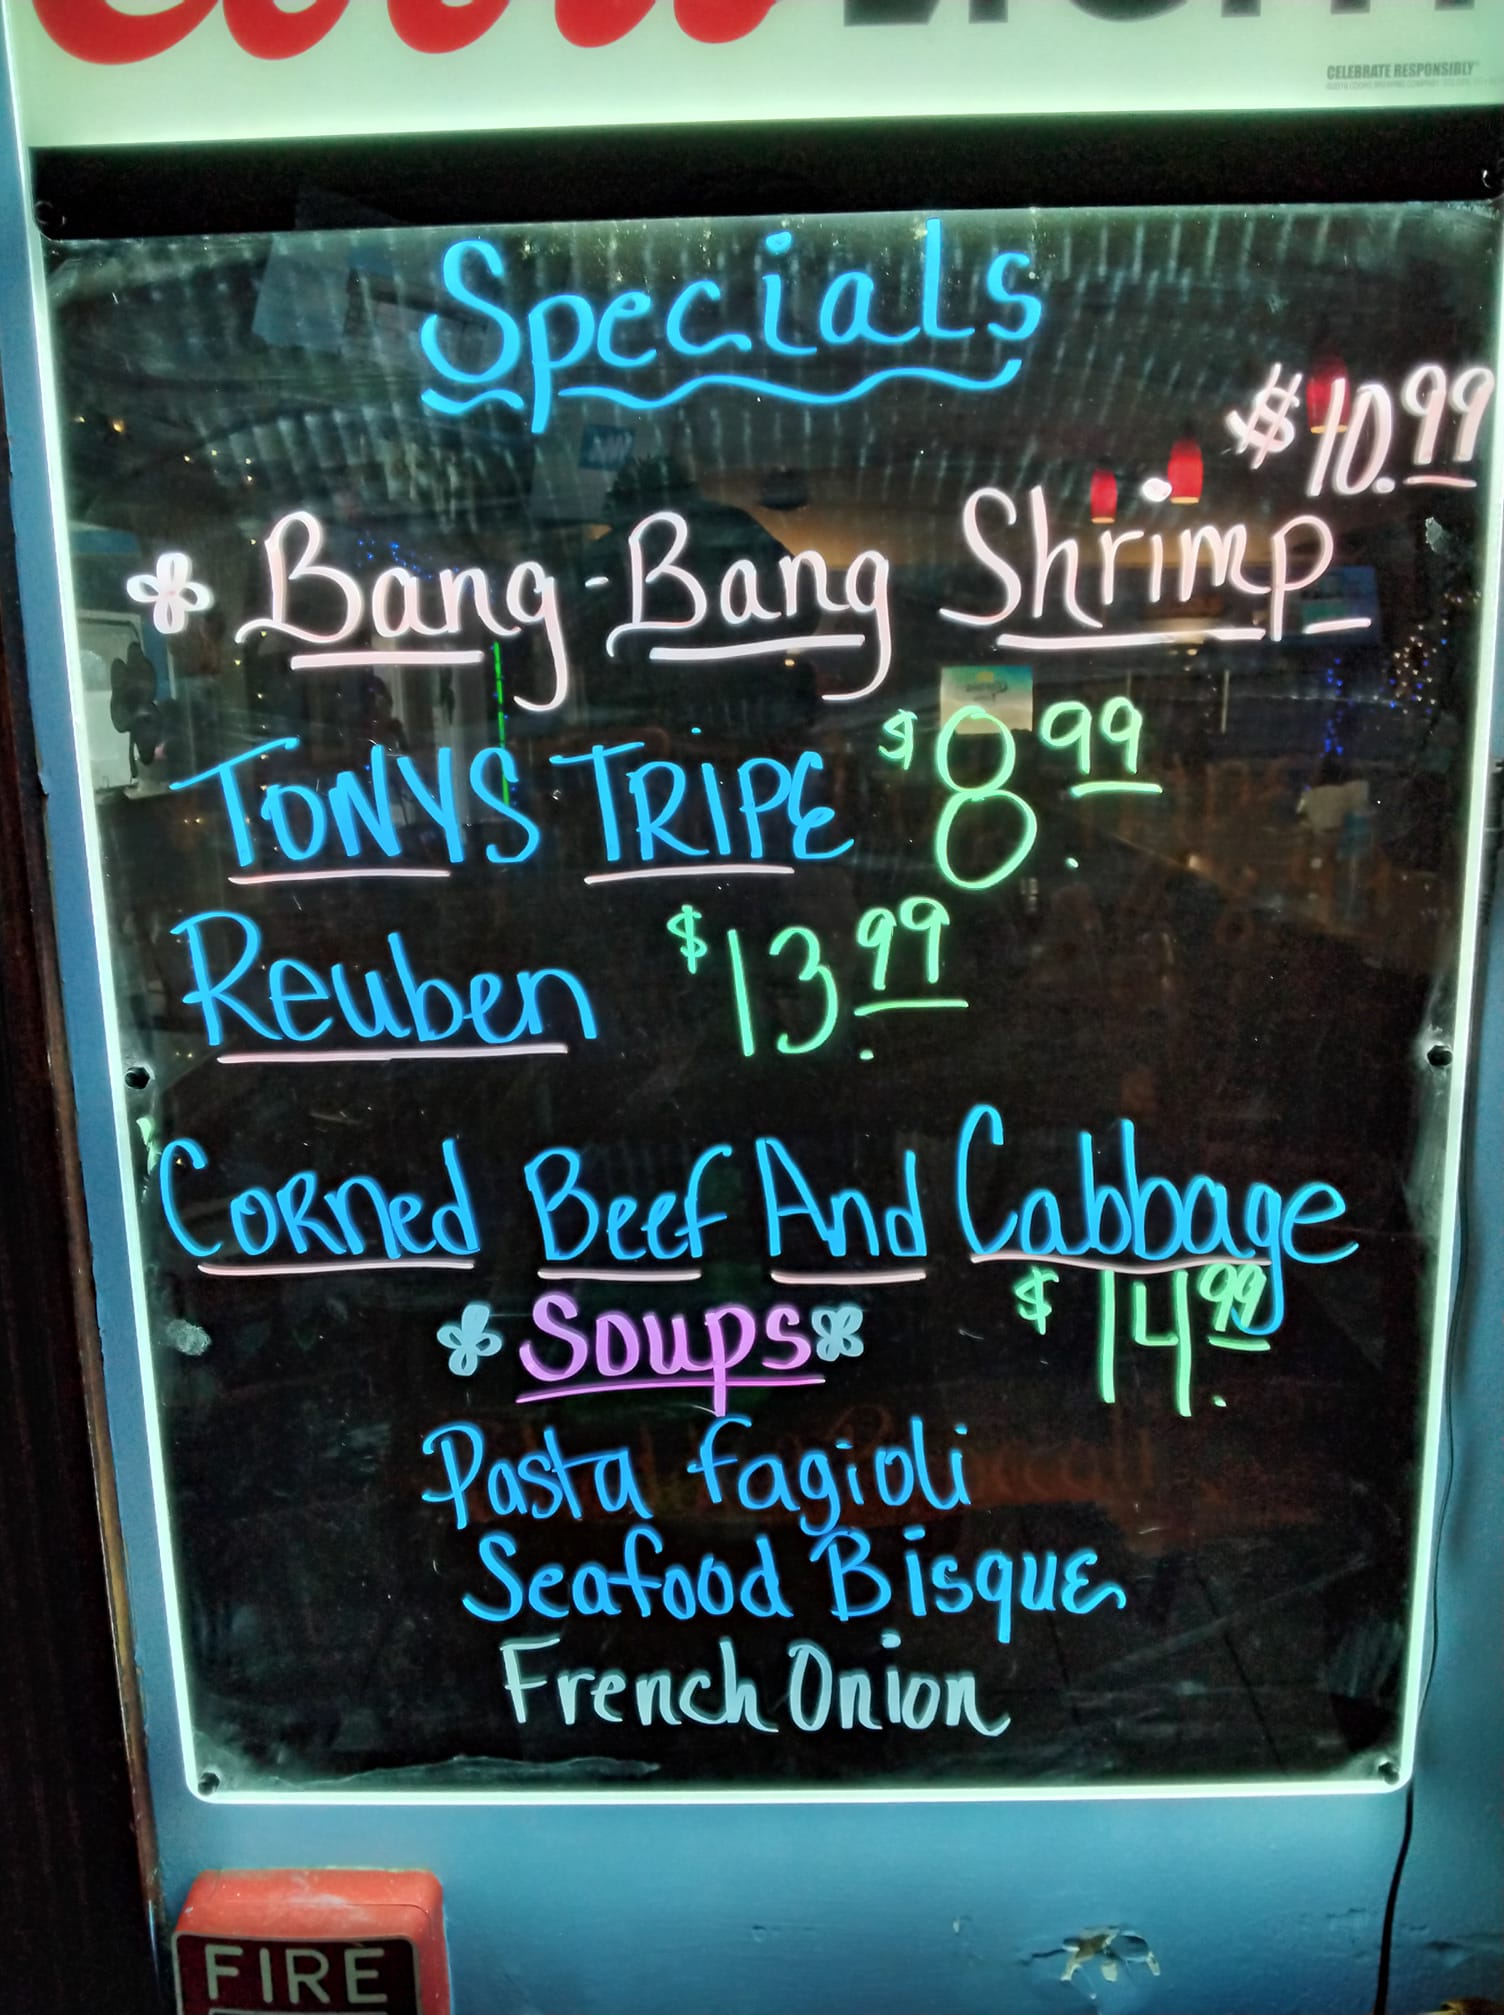 Coors
CELEBRATE RESPONSIBLY
Specials
$10.99
Bang-Bang Shrimp
TONYS TRIPE $8.99
Reuben $13.99
Corned Beef And Cabbage
$14.99
Soups
Pasta fagioli
Seafood Bisque
French Onion
FIRE